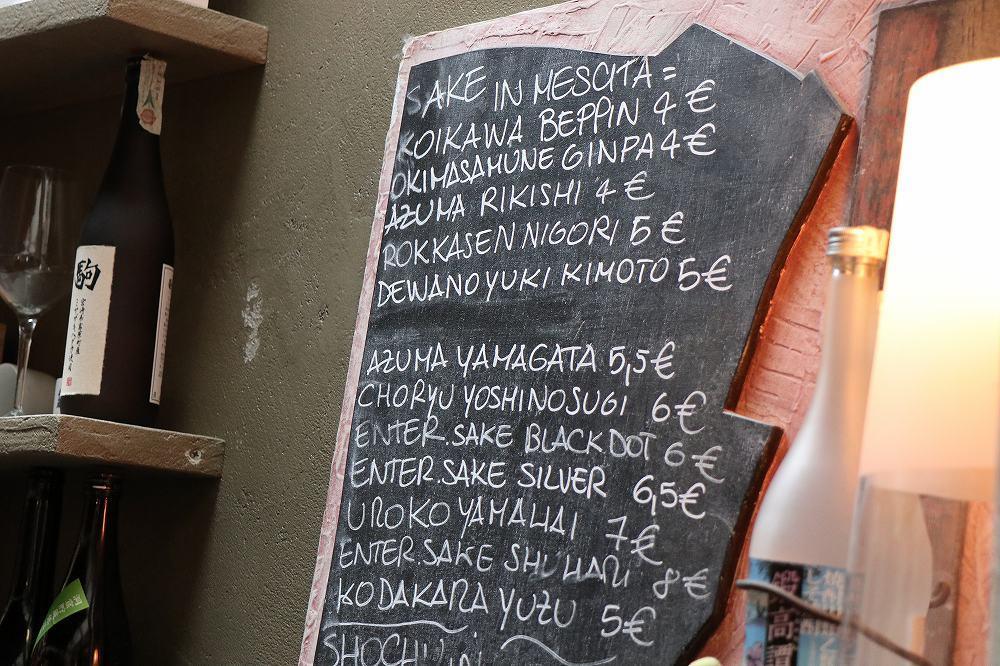 SAKE IN MESCITA =
KOIKAWA BEPPIN 4 €
OKIMASAMUNE GINPA 4 €
AZUMA RIKISHI 4 €
ROKKASEN NIGORI 5 €
DEWANOYUKI KIMOTO 5 €
AZUMA YAMAGATA 5,5 €
CHORYU YOSHINOSUGI 6 €
ENTER.SAKE BLACK DOT 6 €
ENTER.SAKE SILVER 6,5 €
UROKO YAMAHAI 7 €
ENTER.SAKE SHUHARI 8 €
KODAKARA YUZU 5 €
SHOCHU
駒